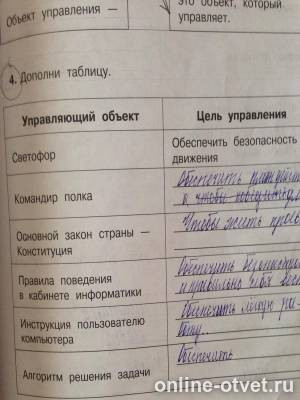 Объект управления —
это объект, который
управляет.
4. Дополни таблицу.
Управляющий объект
Цель управления
Светофор
Обеспечить безопасность
движения
Командир полка
Обеспечить
к чтобы
Основной закон страны —
Конституция
Чтобы жить
Правила поведения
в кабинете информатики
Обеспечить
Инструкция пользователю
компьютера
Обеспечить
Алгоритм решения задачи
Обеспечить
online-otvet.ru